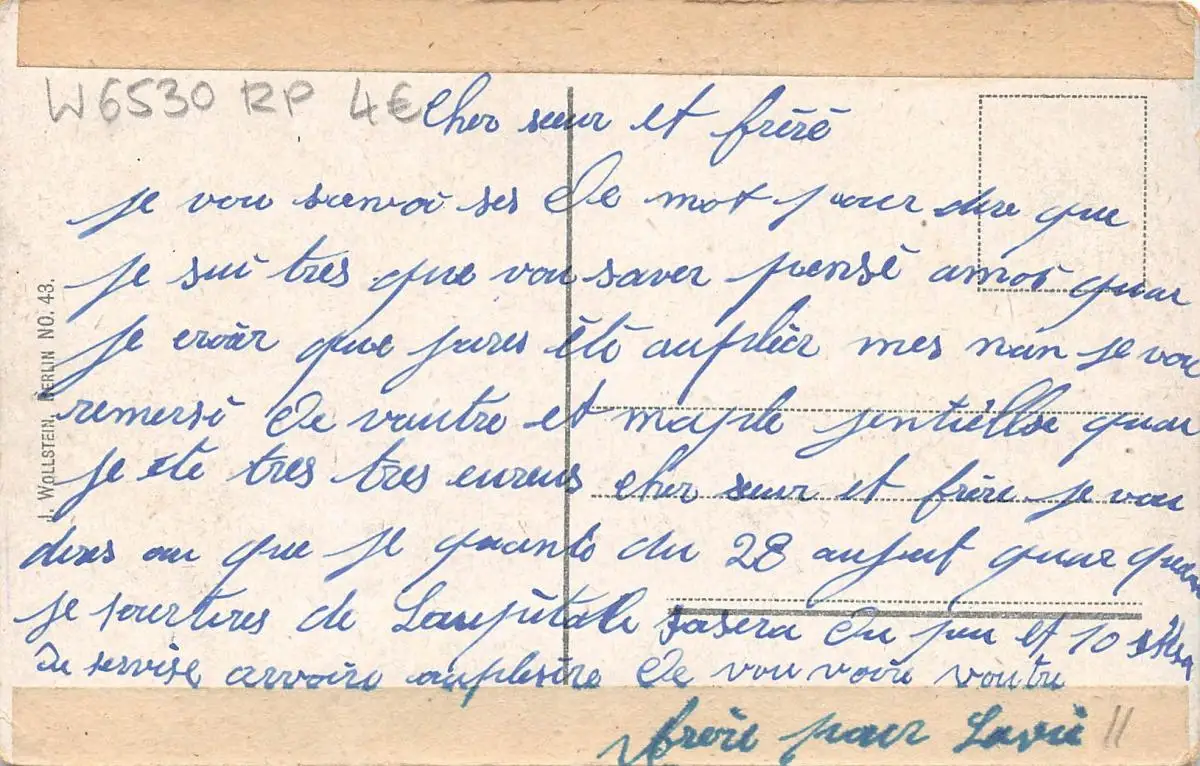 W6530 RP 4€
Cher sœur et fréré
je vou sanvoi ses De mot pour dire que
je sui tres que vou saver pensé amoi quar
je croir que jares été auplier mes nan je vou
remersi De vautre et maple jentiellse quar
je ete tres tres eureus cher seur et frére je vou
dires au que je quante du 28 aujout quar quan
je sourtires de Laupitale sasera Du peu et 10
De servise arvoire auplesire De vou voire voutre
frére pour Lavie 11
J. WOLLSTEIN, BERLIN NO. 43.